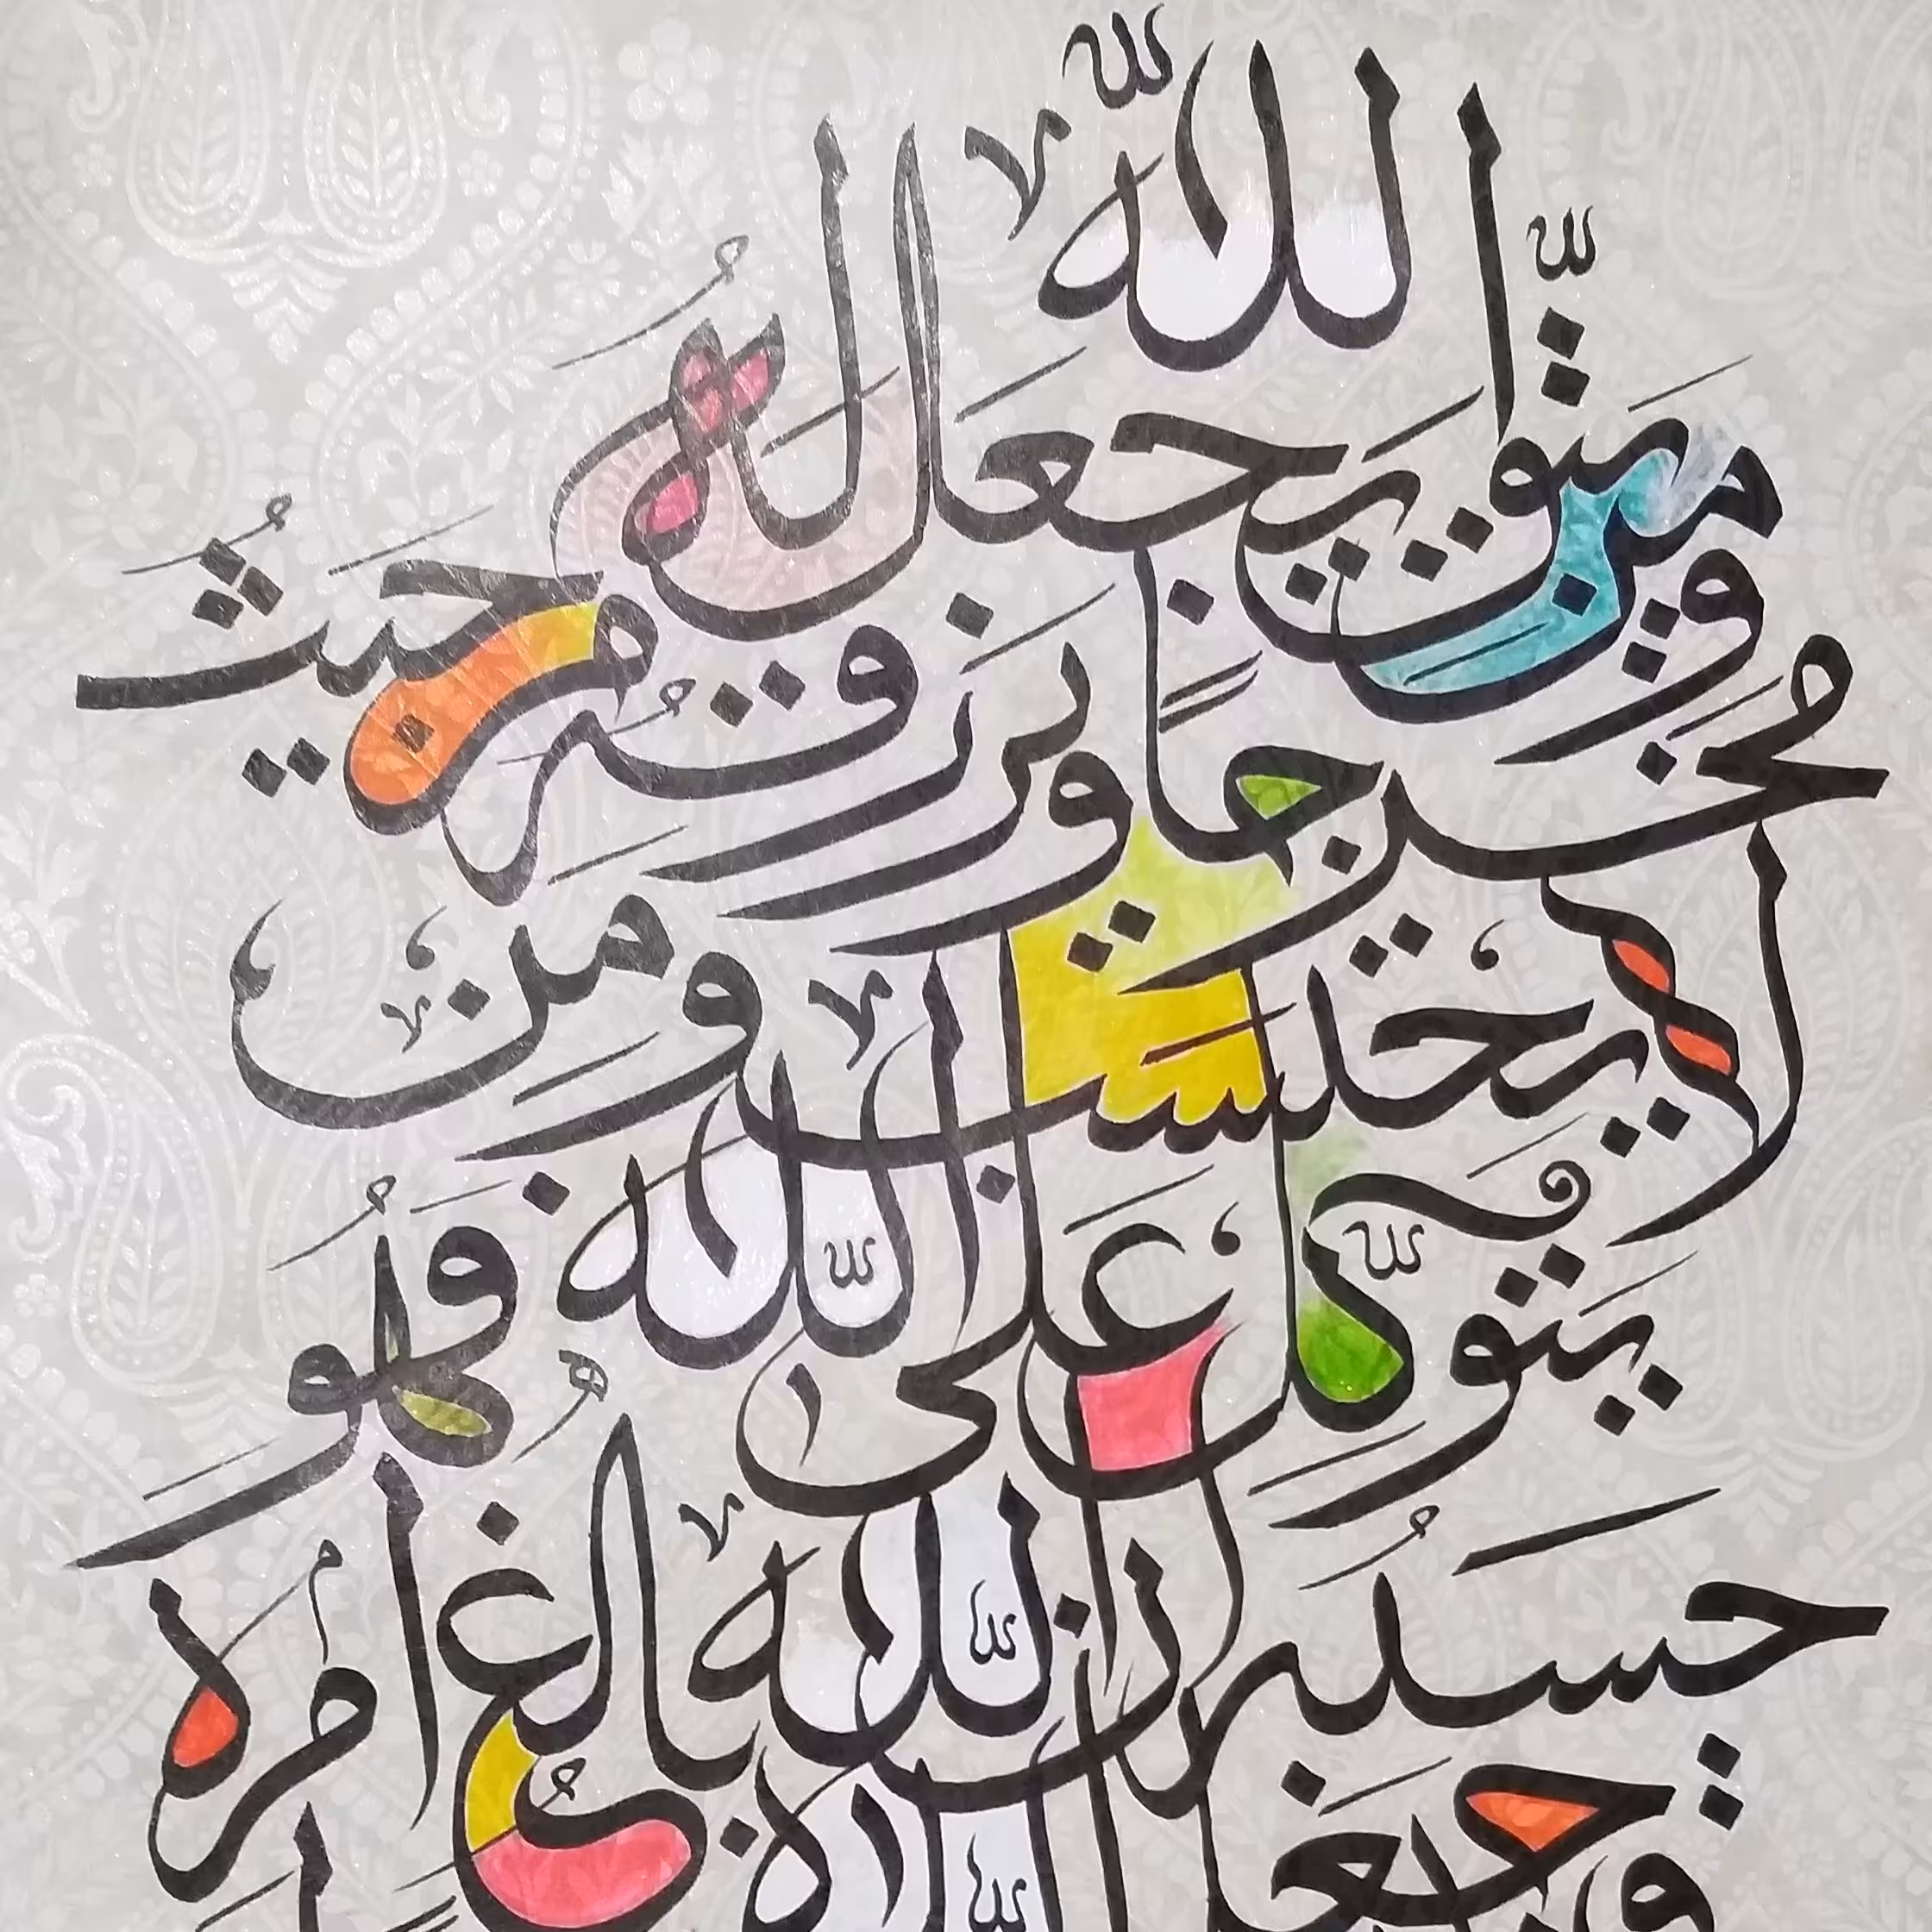 ومن يتق الله يجعل له
مخرجا ويرزقه من حيث
لا يحتسب ومن
يتوكل على الله فهو
حسبه ان الله بالغ امره
قد جعل الله